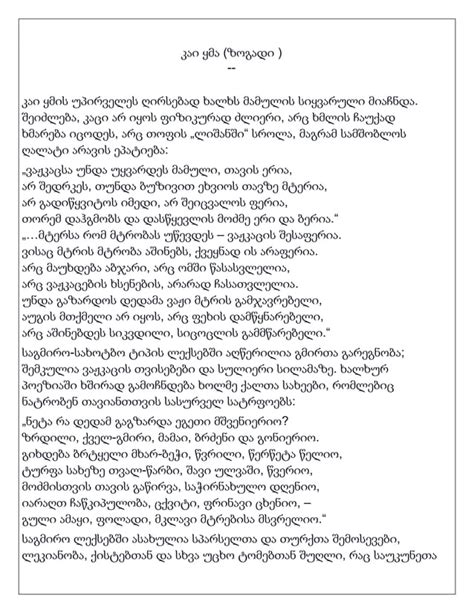 კაი ყმა (ზოგადი )
--
კაი ყმის უპირველეს ღირსებად ხალხს მამულის სიყვარული მიაჩნდა.
შეიძლება, კაცი არ იყოს ფიზიკურად ძლიერი, არც ხმლის ჩაუქად
ხმარება იცოდეს, არც თოფის „ლიშანში“ სროლა, მაგრამ სამშობლოს
ღალატი არავის ეპატიება:
„ვაჟკაცსა უნდა უყვარდეს მამული, თავის ერია,
არ შედრკეს, თუნდა ბუზივით ეხვიოს თავზე მტერია,
არ გადიწყვიტოს იმედი, არ შეიცვალოს ფერია,
თორემ დაჰგმობს და დასწყევლის მოძმე ერი და ბერია.“
„...მტერსა რომ მტრობას უწევდეს – ვაჟკაცის შესაფერია.
ვისაც მტრის მტრობა აშინებს, ქვეყნად ის არაფერია.
არც მაუხდება აბჯარი, არც ომში წასასვლელია,
არც ვაჟკაცების ხსენების, არარად ჩასათვლელია.
უნდა გაზარდოს დედამა ვაჟი მტრის გამჯავრებელი,
აუგის მთქმელი არ იყოს, არც ფეხის დამწყნარებელი,
არც აშინებდეს სიკვდილი, სიცოცლის გამმწარებელი.“
საგმირო-სახოტბო ტიპის ლექსებში აღწერილია გმირთა გარეგნობა;
შემკულია ვაჟკაცის თვისებები და სულიერი სილამაზე. ხალხურ
პოეზიაში ხშირად გამოჩნდება ხოლმე ქალთა სახეები, რომლებიც
ნატრობენ თავიანთთვის სასურველ სატრფოებს:
„ნეტა რა დედამ გაგზარდა ეგეთი მშვენიერიო?
ზრდილი, ქველ-გმირი, მამაი, ბრძენი და გონიერიო.
გიხდება ბრტყელი მხარ-ბეჭი, წვრილი, წერწეტა წელიო,
ტურფა სახეზე თვალ-წარბი, შავი ულვაში, წვერიო,
მოძმისთვის თავის გაწირვა, საჭირნახულო დღენიო,
იარაღთ ჩაწკიპულობა, ცქვიტი, ფრინავი ცხენიო, –
გული ამაყი, ფოლადი, მკლავი მტრებისა მსვრელიო.“
საგმირო ლექსებში ასახულია სპარსელთა და თურქთა შემოსევები,
ლეკიანობა, ქისტებთან და სხვა უცხო ტომებთან შუღლი, რაც საუკუნეთა